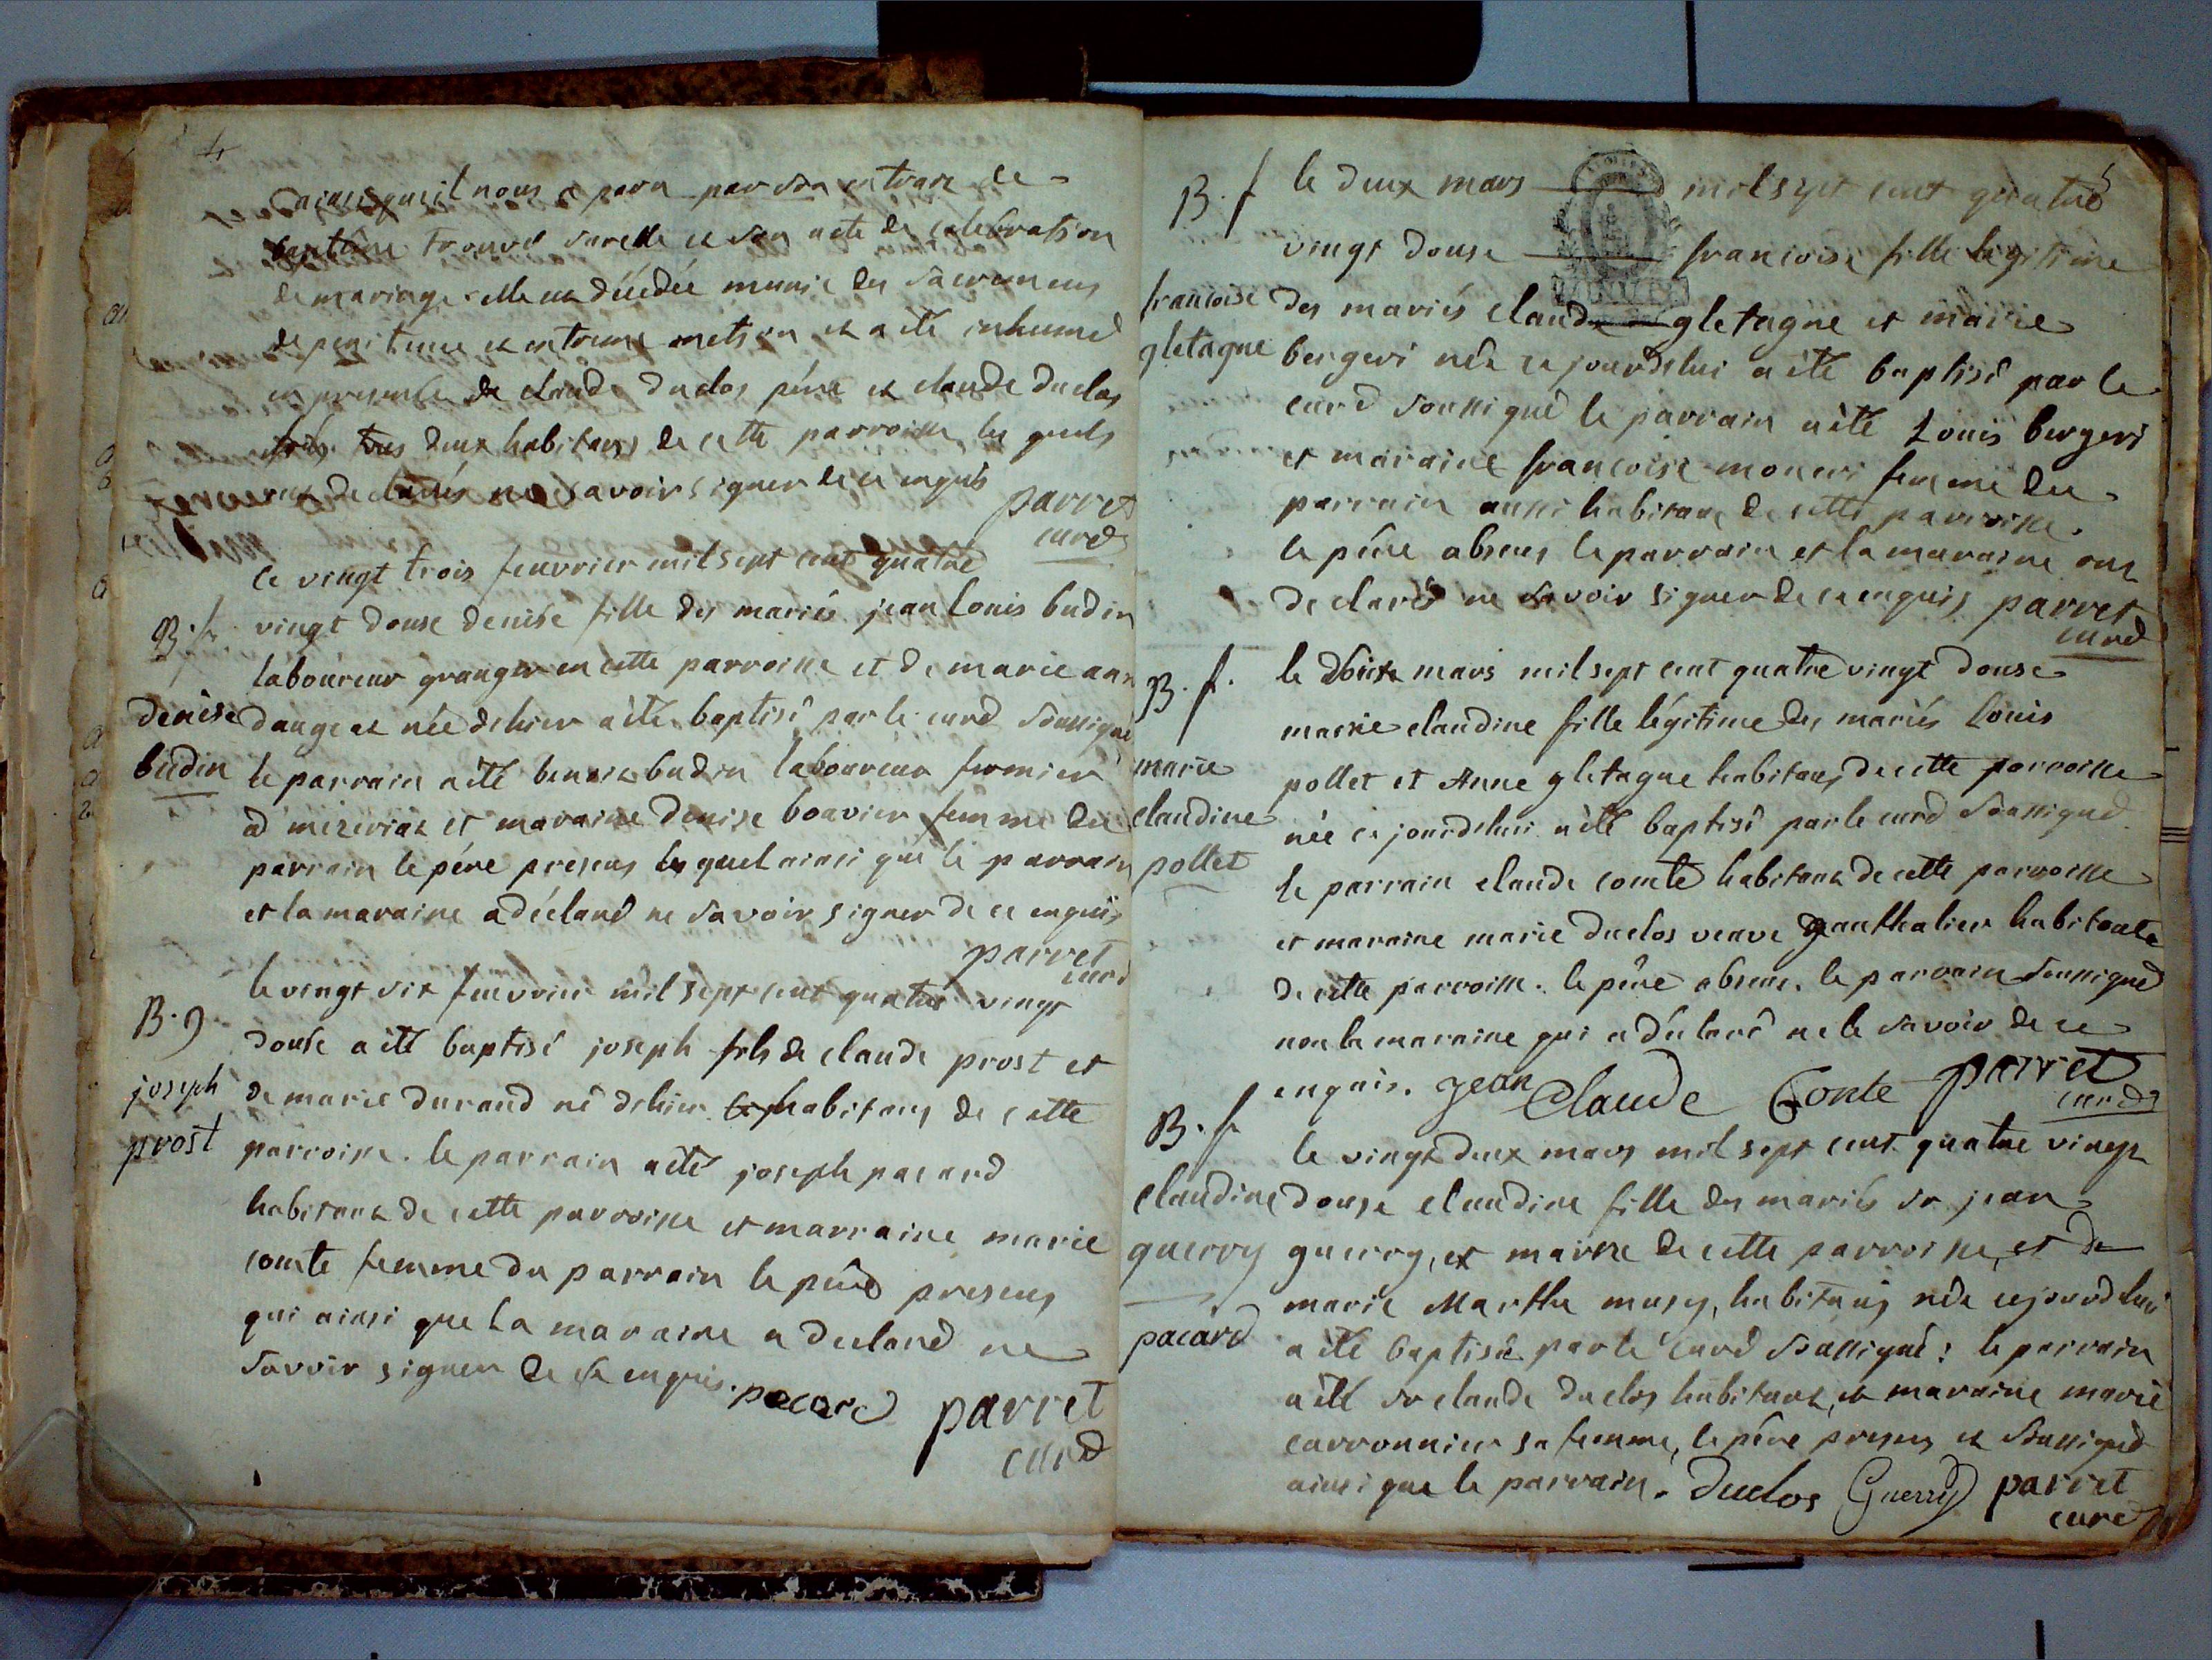 4
ainsi quil nous a paru par son extrait de
baptême trouvé sur elle et son acte de celebration
de mariage. elle est décédée munie des sacremens
de penitence et extreme onction et a été inhumé
en presence de claude duclos pére et claude duclos
fils tous deux habitans de cette parroisse les quels
ont declarés ne savoir signer de ce enquis
parret
curé
le vingt trois feuvrier mil sept cent quatre
B. f. vingt douse denise fille des mariés jean louis budin
laboureur granger en cette parroisse et de marie ann
denise dangeat née dehier a été baptisé par le curé soussigné
budin le parrain a été benoit budin laboureur fermier
a mizeriat et maraine denise bouvier femme du
parrain le pére present le quel ainsi que le parrain
et la maraine a déclaré ne savoir signer de ce enquis
parret
curé
le vingt six feuvrier mil sept cent quatre vingt
B. g
douse a été baptisé joseph fils de claude prost et
joseph de marie durand né dehier habitans de cette
prost parroisse. le parrain a été joseph pacard
habitant de cette parroisse et marraine marie
comte femme du parrain le pére present
qui ainsi que la maraine a declaré ne
savoir signer de ce enquis. pacard parret
curé
5
B. f le deux mars mil sept cent quatre
vingt douse francoise fille legitime
francoise des mariés claude gletagne et marie
gletagne bergeri née ce jourdhui a été baptisé par le
curé soussigné le parrain a été Louis bergeri
et maraine francoise moneri femme du
parrain aussi habitans de cette parroisse.
le pére absent le parrain et la maraine ont
declarés ne savoir signer de ce enquis parret
curé
B. f. le mars mil sept cent quatre vingt douse
marie claudine fille légitime des mariés louis
marie pollet et Anne gletagne habitans de cette parroisse
claudine née ce jourdhui a été baptisé par le curé soussigné
pollet le parrain claude comte habitant de cette parroisse
et maraine marie duclos veuve ganthalier habitante
de cette parroisse. le pére absent. le parrain soussigné
non la maraine qui a déclaré ne le savoir de ce
enquis. jean Claude Conte parret
curé
B. f. le vingt deux mars mil sept cent quatre vingt
claudine douse claudine fille des mariés sr jean
guerry guerry, et maire de cette parroisse, et de
marie Marthe musy, habitans née cejourdhui
pacard a été baptisé par le curé soussigné: le parrain
a été sr claude duclos habitant, et maraine marie
carronnier sa femme, le pére present et soussigné
ainsi que le parrain. Duclos Guerry parret
curé